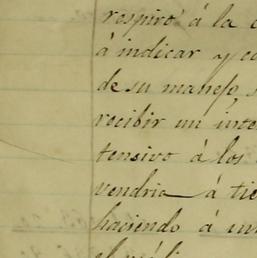 respiro á la
á indicar y
de su manejo
recibir un inte
tensivo á los
vendria á tie
haciendo á un